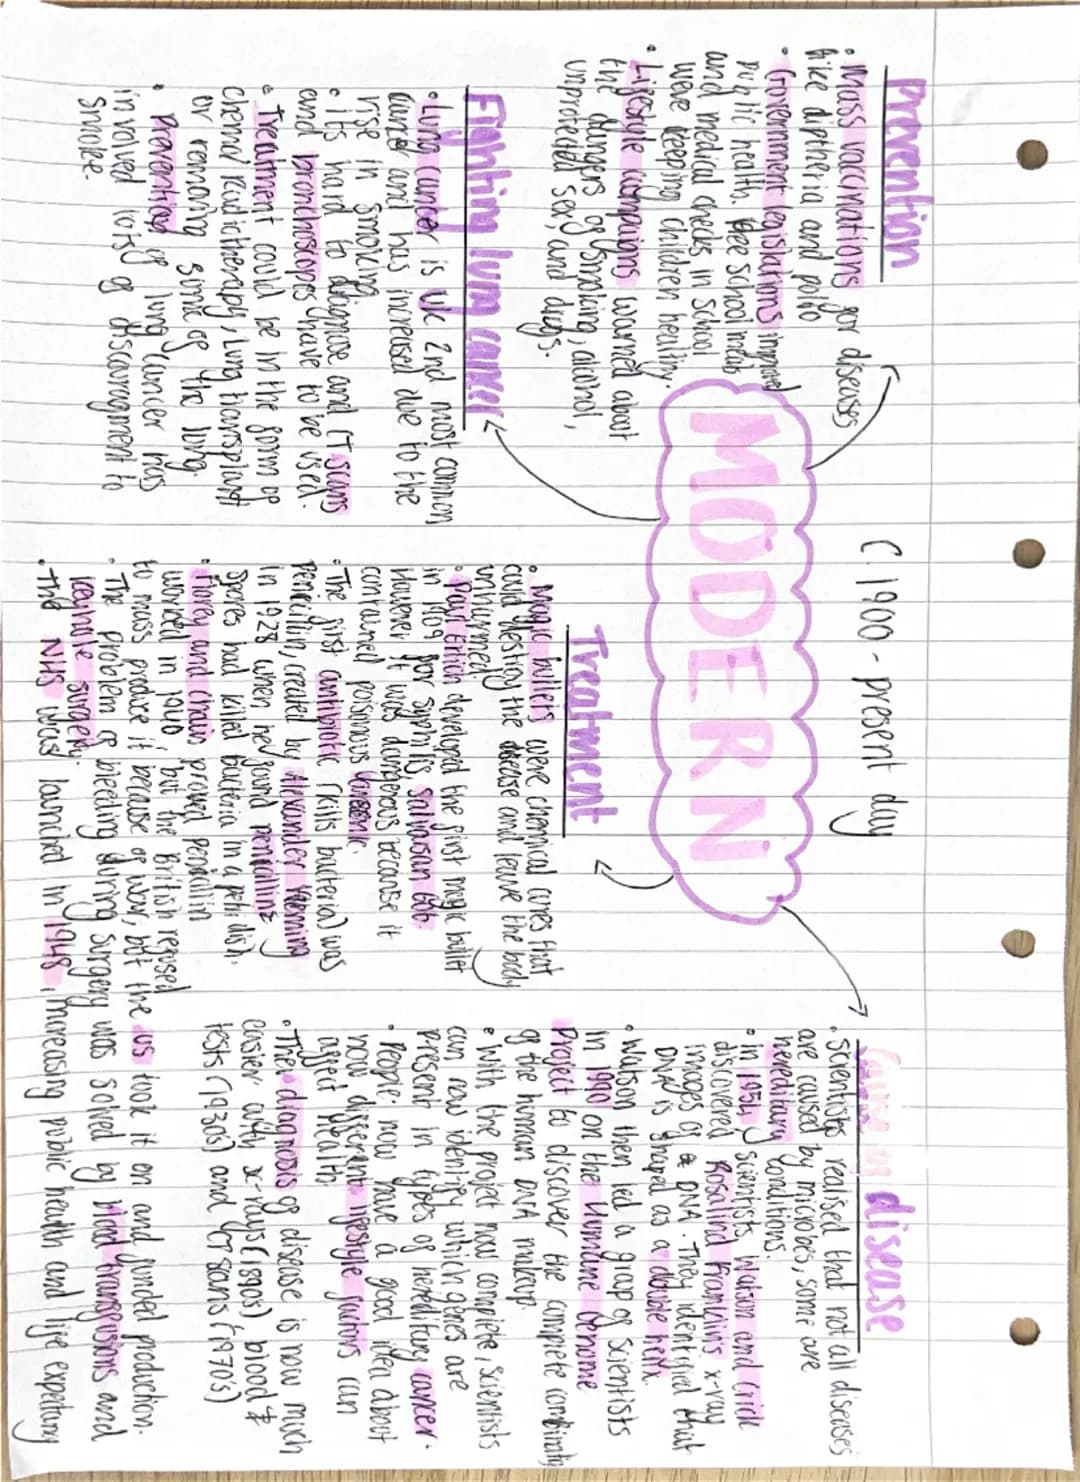 C. 1900 - present day
MODERN
Prevention
• Mass vaccinations for diseases
like diptheria and polio
• Government legislations improved
public health. Free school meals
and medical checks in school
were keeping children healthy
• Lifestyle campaigns warned about
the dangers of smoking, alcohol,
unprotected sex, and drugs.
Fighting lung cancer
• Lung cancer is UK 2nd most common
cancer and has increased due to the
rise in smoking
• its hard to diagnose and CT scans
and bronchoscopes have to be used.
• Treatment could be in the form of
chemo/radiotherapy, lung transplant
or removing some of the lung.
• preventing of lung cancer has
involved lots of discouragment to
smoke.
Treatment
• Magic bullets were chemical cures that
could destroy the disease and leave the body
unharmed.
• Paul Erlich developed the first magic bullet
in 1909 for syphilis salvarsan 606.
However it was dangerous because it
contained poisonous arsenic.
• The first antibiotic (kills bacteria) was
penicillin, created by Alexander Fleming
in 1928 when he found penicillin
spores had killed bacteria in a petri dish.
• Florey and chain proved penicillin
worked in 1940 but the British refused
to mass produce it because of war, but the US took it on and funded production.
• The problem of bleeding during surgery was solved by blood transfusions and
keyhole surgery.
• The NHS was launched in 1948, increasing public health and life expectany
disease
• scientists realised that not all diseases
are caused by microbes, some are
hereditary conditions.
• in 1954, scientists Watson and Crick
discovered Rosalind Franklin's x-ray
images of DNA. They identified that
DNA is shaped as a double helix.
• Watson then led a group of scientists
in 1990 on the Humane Genome
Project to discover the complete
of the human DNA makeup.
• With the project now complete, scientists
can now identify which genes are
present in types of hereditary cancer.
• People now have a good idea about
how different lifestyle factors can
affect health.
• The diagnosis of disease is now much
easier with x-rays (1890s) blood
tests (1930s) and CT scans (1970's)